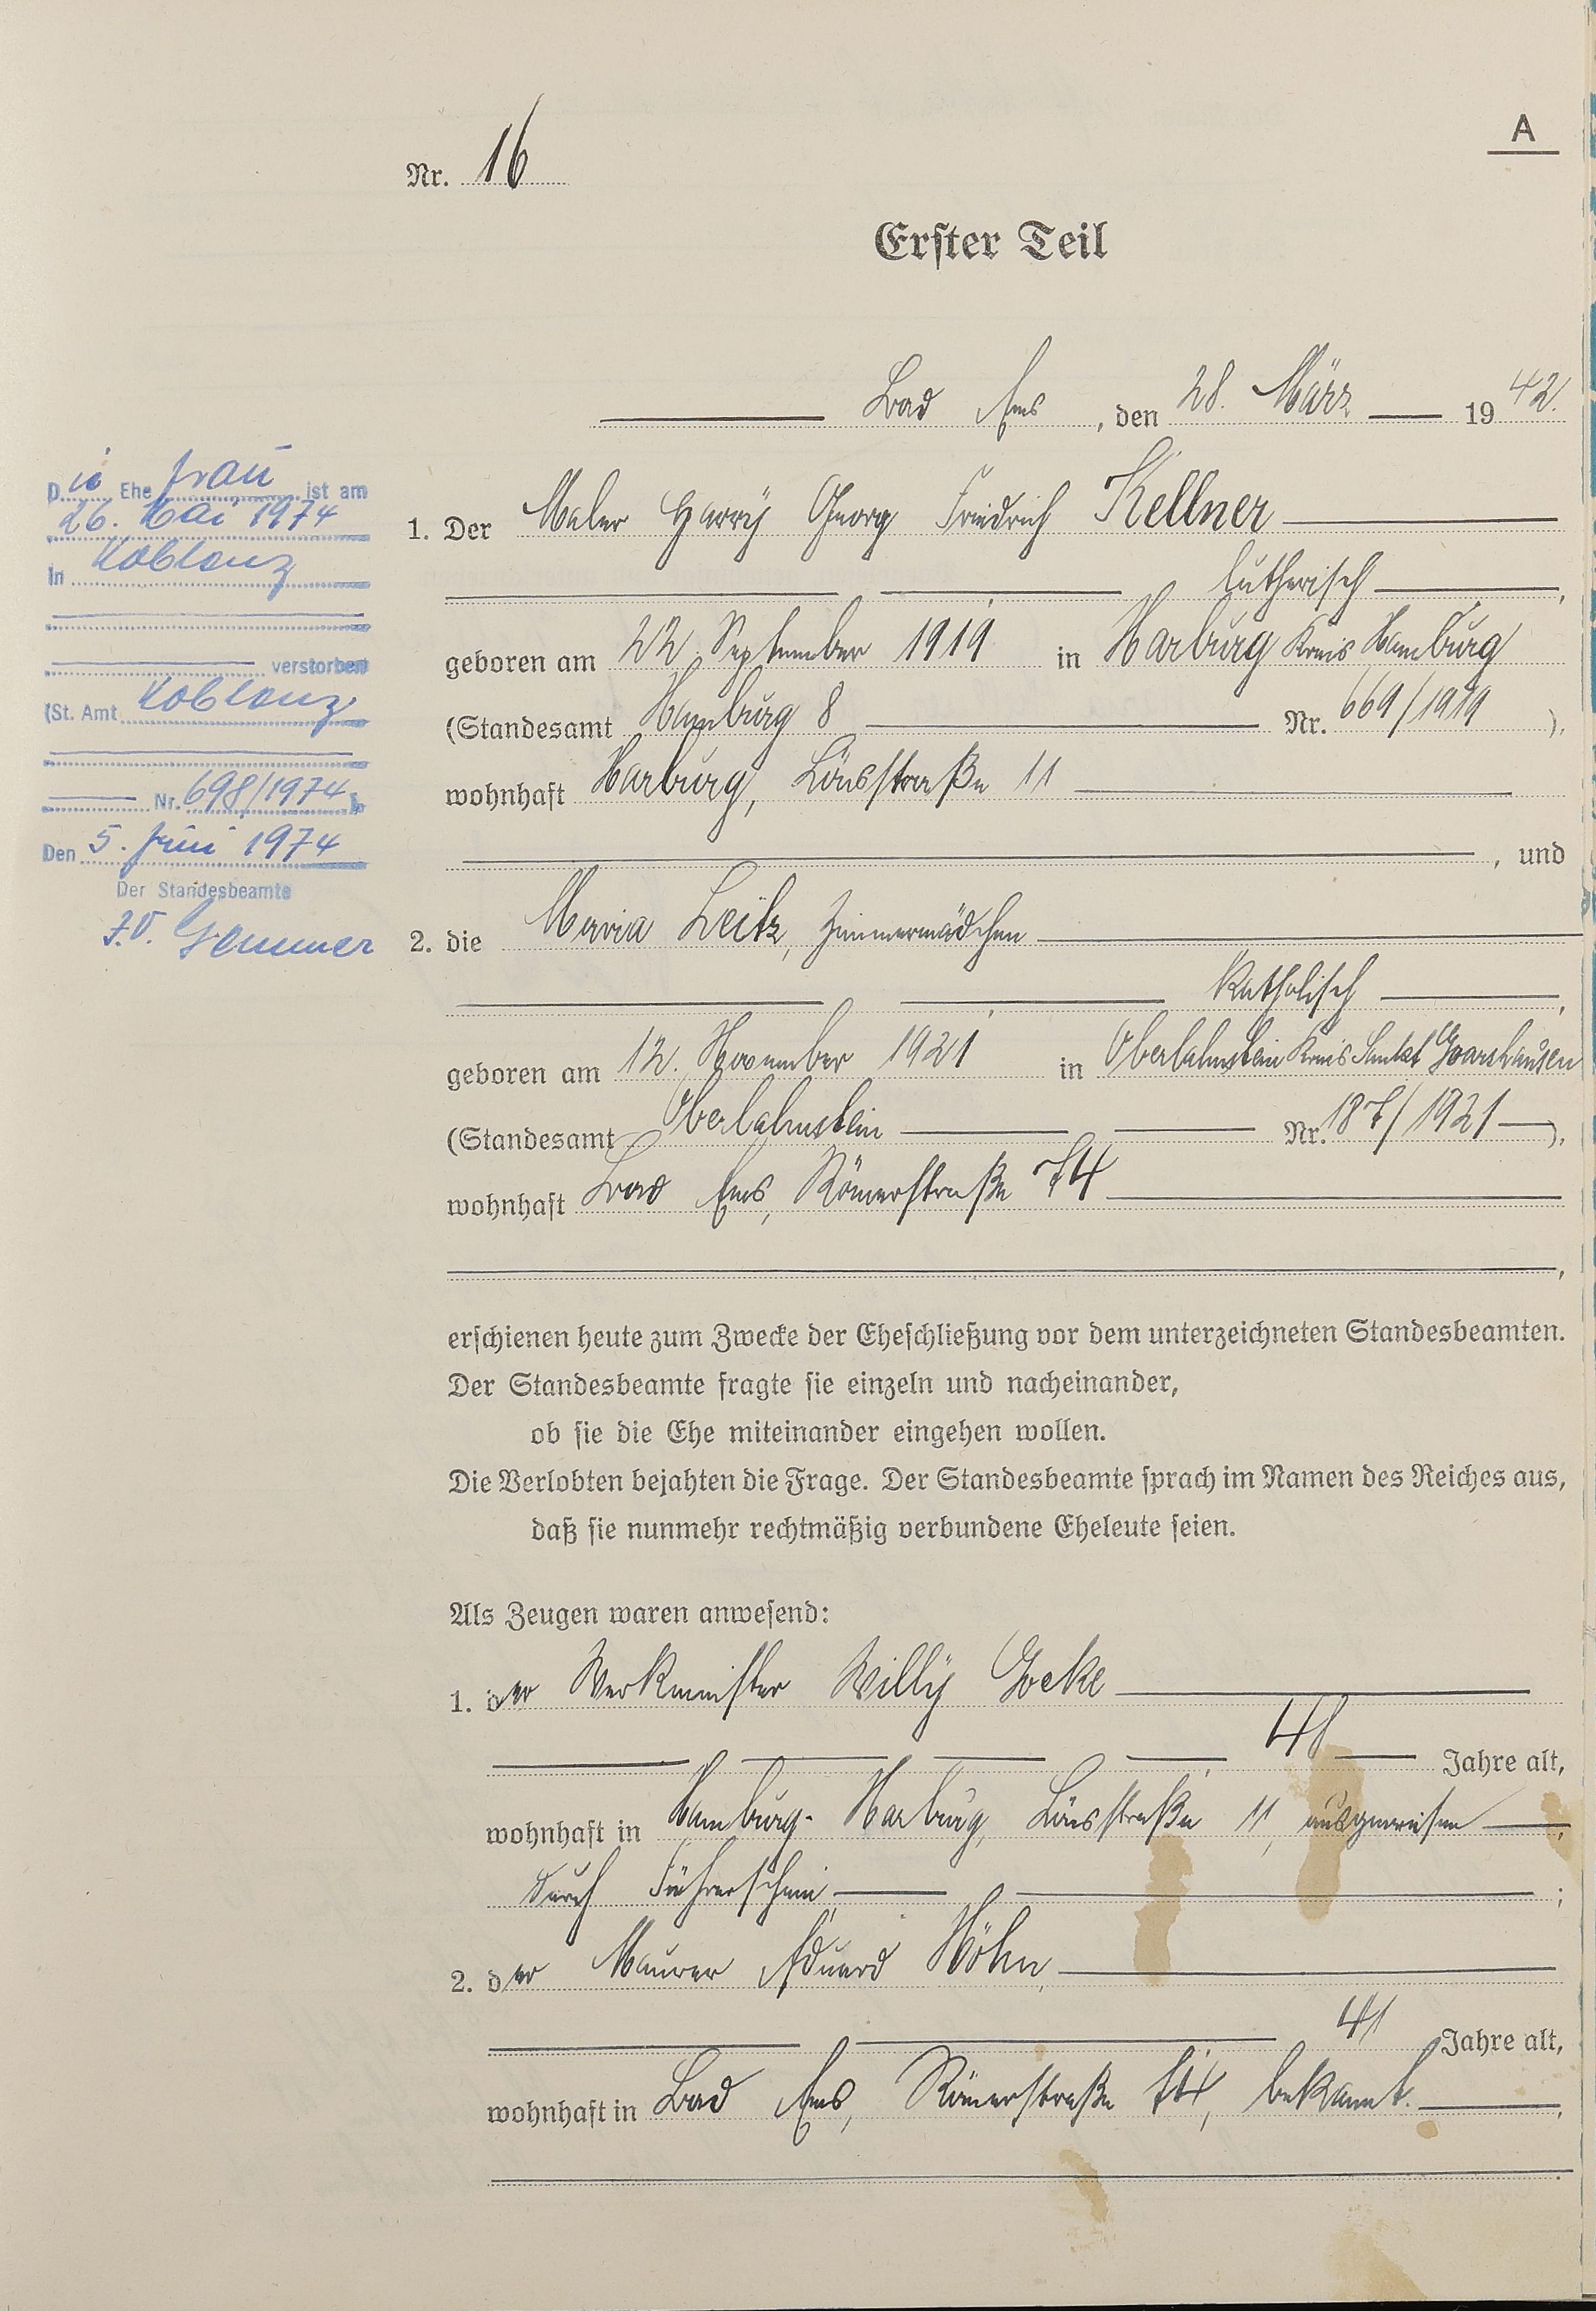 A
Nr. 16
Erster Teil
Bad Ems, den 28. März 1942.
1. Der Maler Harry Georg Friedrich Kellner
lutherisch,
geboren am 22. September 1919 in Harburg Kreis Hamburg
(Standesamt Hamburg 8 Nr. 669/1919),
wohnhaft Harburg, Lönsstraße 11
, und
2. die Maria Leitz, Zimmermädchen
katholisch,
geboren am 12. November 1921 in Oberlahnstein Kreis Sankt Goarshausen
(Standesamt Oberlahnstein Nr. 187/1921),
wohnhaft Bad Ems, Römerstraße 74
,
erschienen heute zum Zwecke der Eheschließung vor dem unterzeichneten Standesbeamten.
Der Standesbeamte fragte sie einzeln und nacheinander,
ob sie die Ehe miteinander eingehen wollen.
Die Verlobten bejahten die Frage. Der Standesbeamte sprach im Namen des Reiches aus,
daß sie nunmehr rechtmäßig verbundene Eheleute seien.
Als Zeugen waren anwesend:
1. der Werkmeister Willy Goeke
48 Jahre alt,
wohnhaft in Hamburg-Harburg, Lönsstraße 11, ausgewiesen
durch Führerschein;
2. der Maurer Eduard Höhn,
41 Jahre alt,
wohnhaft in Bad Ems, Römerstraße 74, bekannt.
Die Ehefrau ist am
26. Mai 1974
in Koblenz
verstorben
(St. Amt Koblenz
Nr. 698/1974)
Den 5. Juni 1974
Der Standesbeamte
J.V.